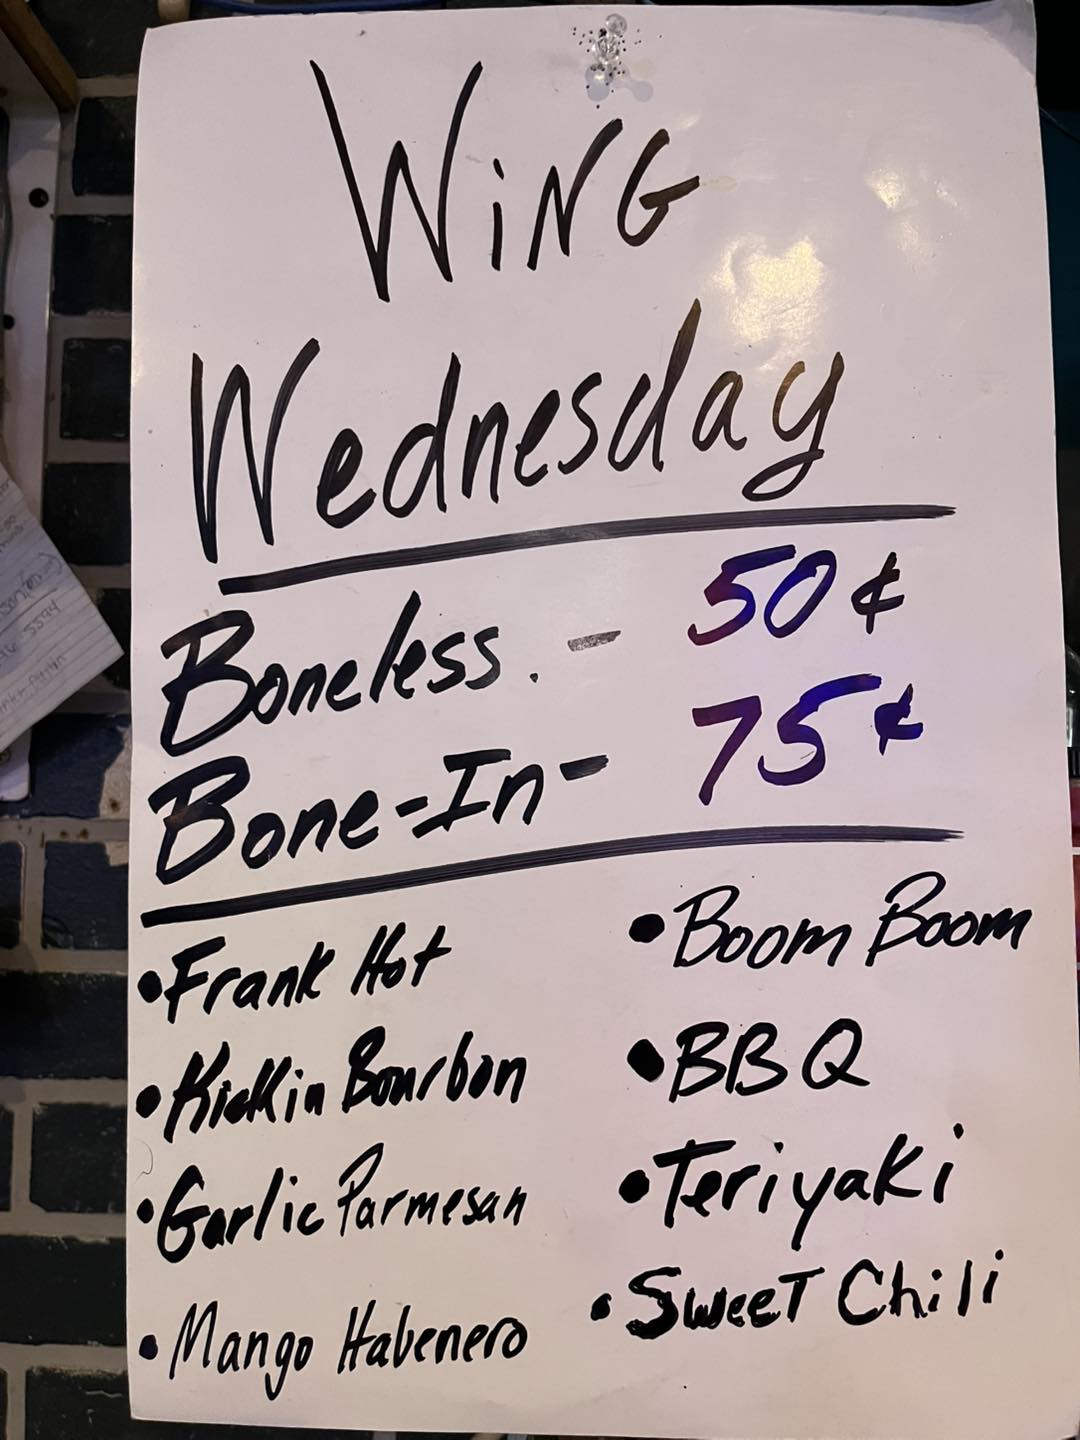 WiNG
Wednesday
Boneless. - 50¢
Bone-In- 75¢
•Frank Hot
•Kickin Bourbon
•Garlic Parmesan
•Mango Habenero
•Boom Boom
•BBQ
•Teriyaki
•SweeT Chili